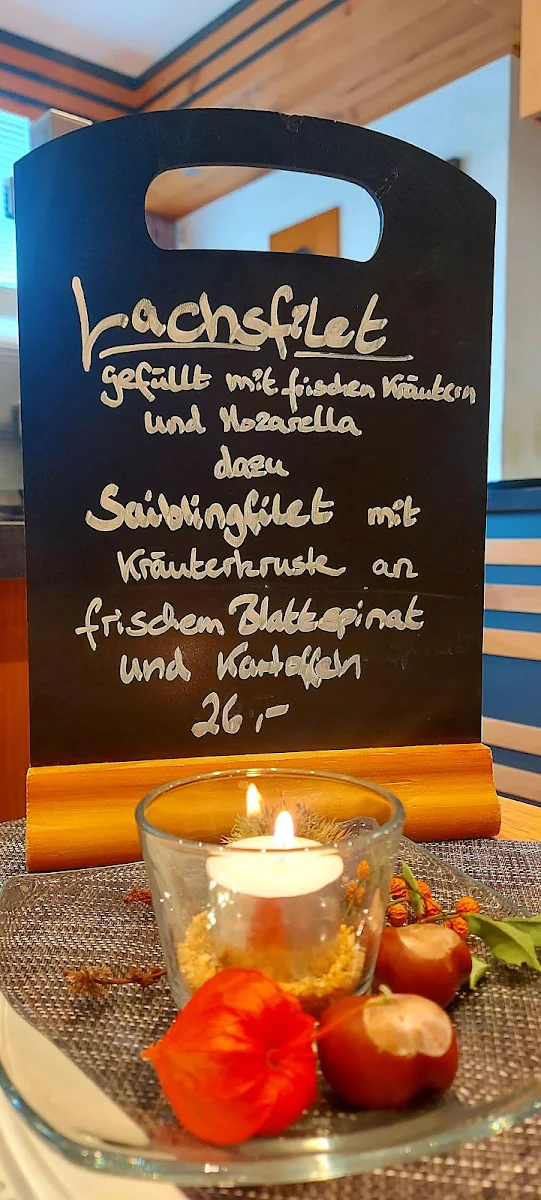 Lachsfilet
gefüllt mit frischen Kräutern
und Mozarella
dazu
Saiblingfilet mit
Kräuterkruste an
frischem Blattspinat
und Kartoffeln
26,-